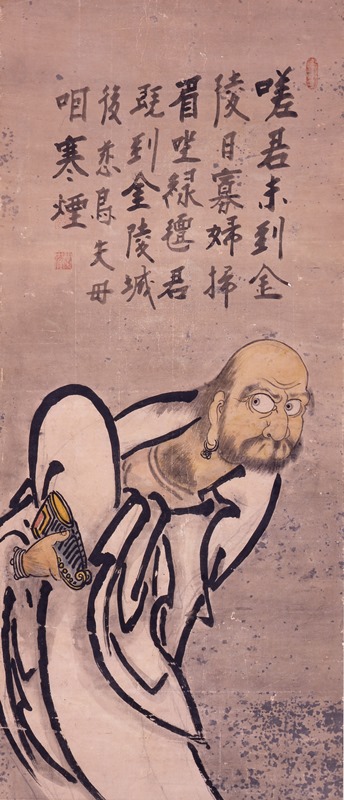 嗟君未到金
陵日寡婦掃
眉坐緑氊君
既到金陵城
後慈烏失母
咽寒煙